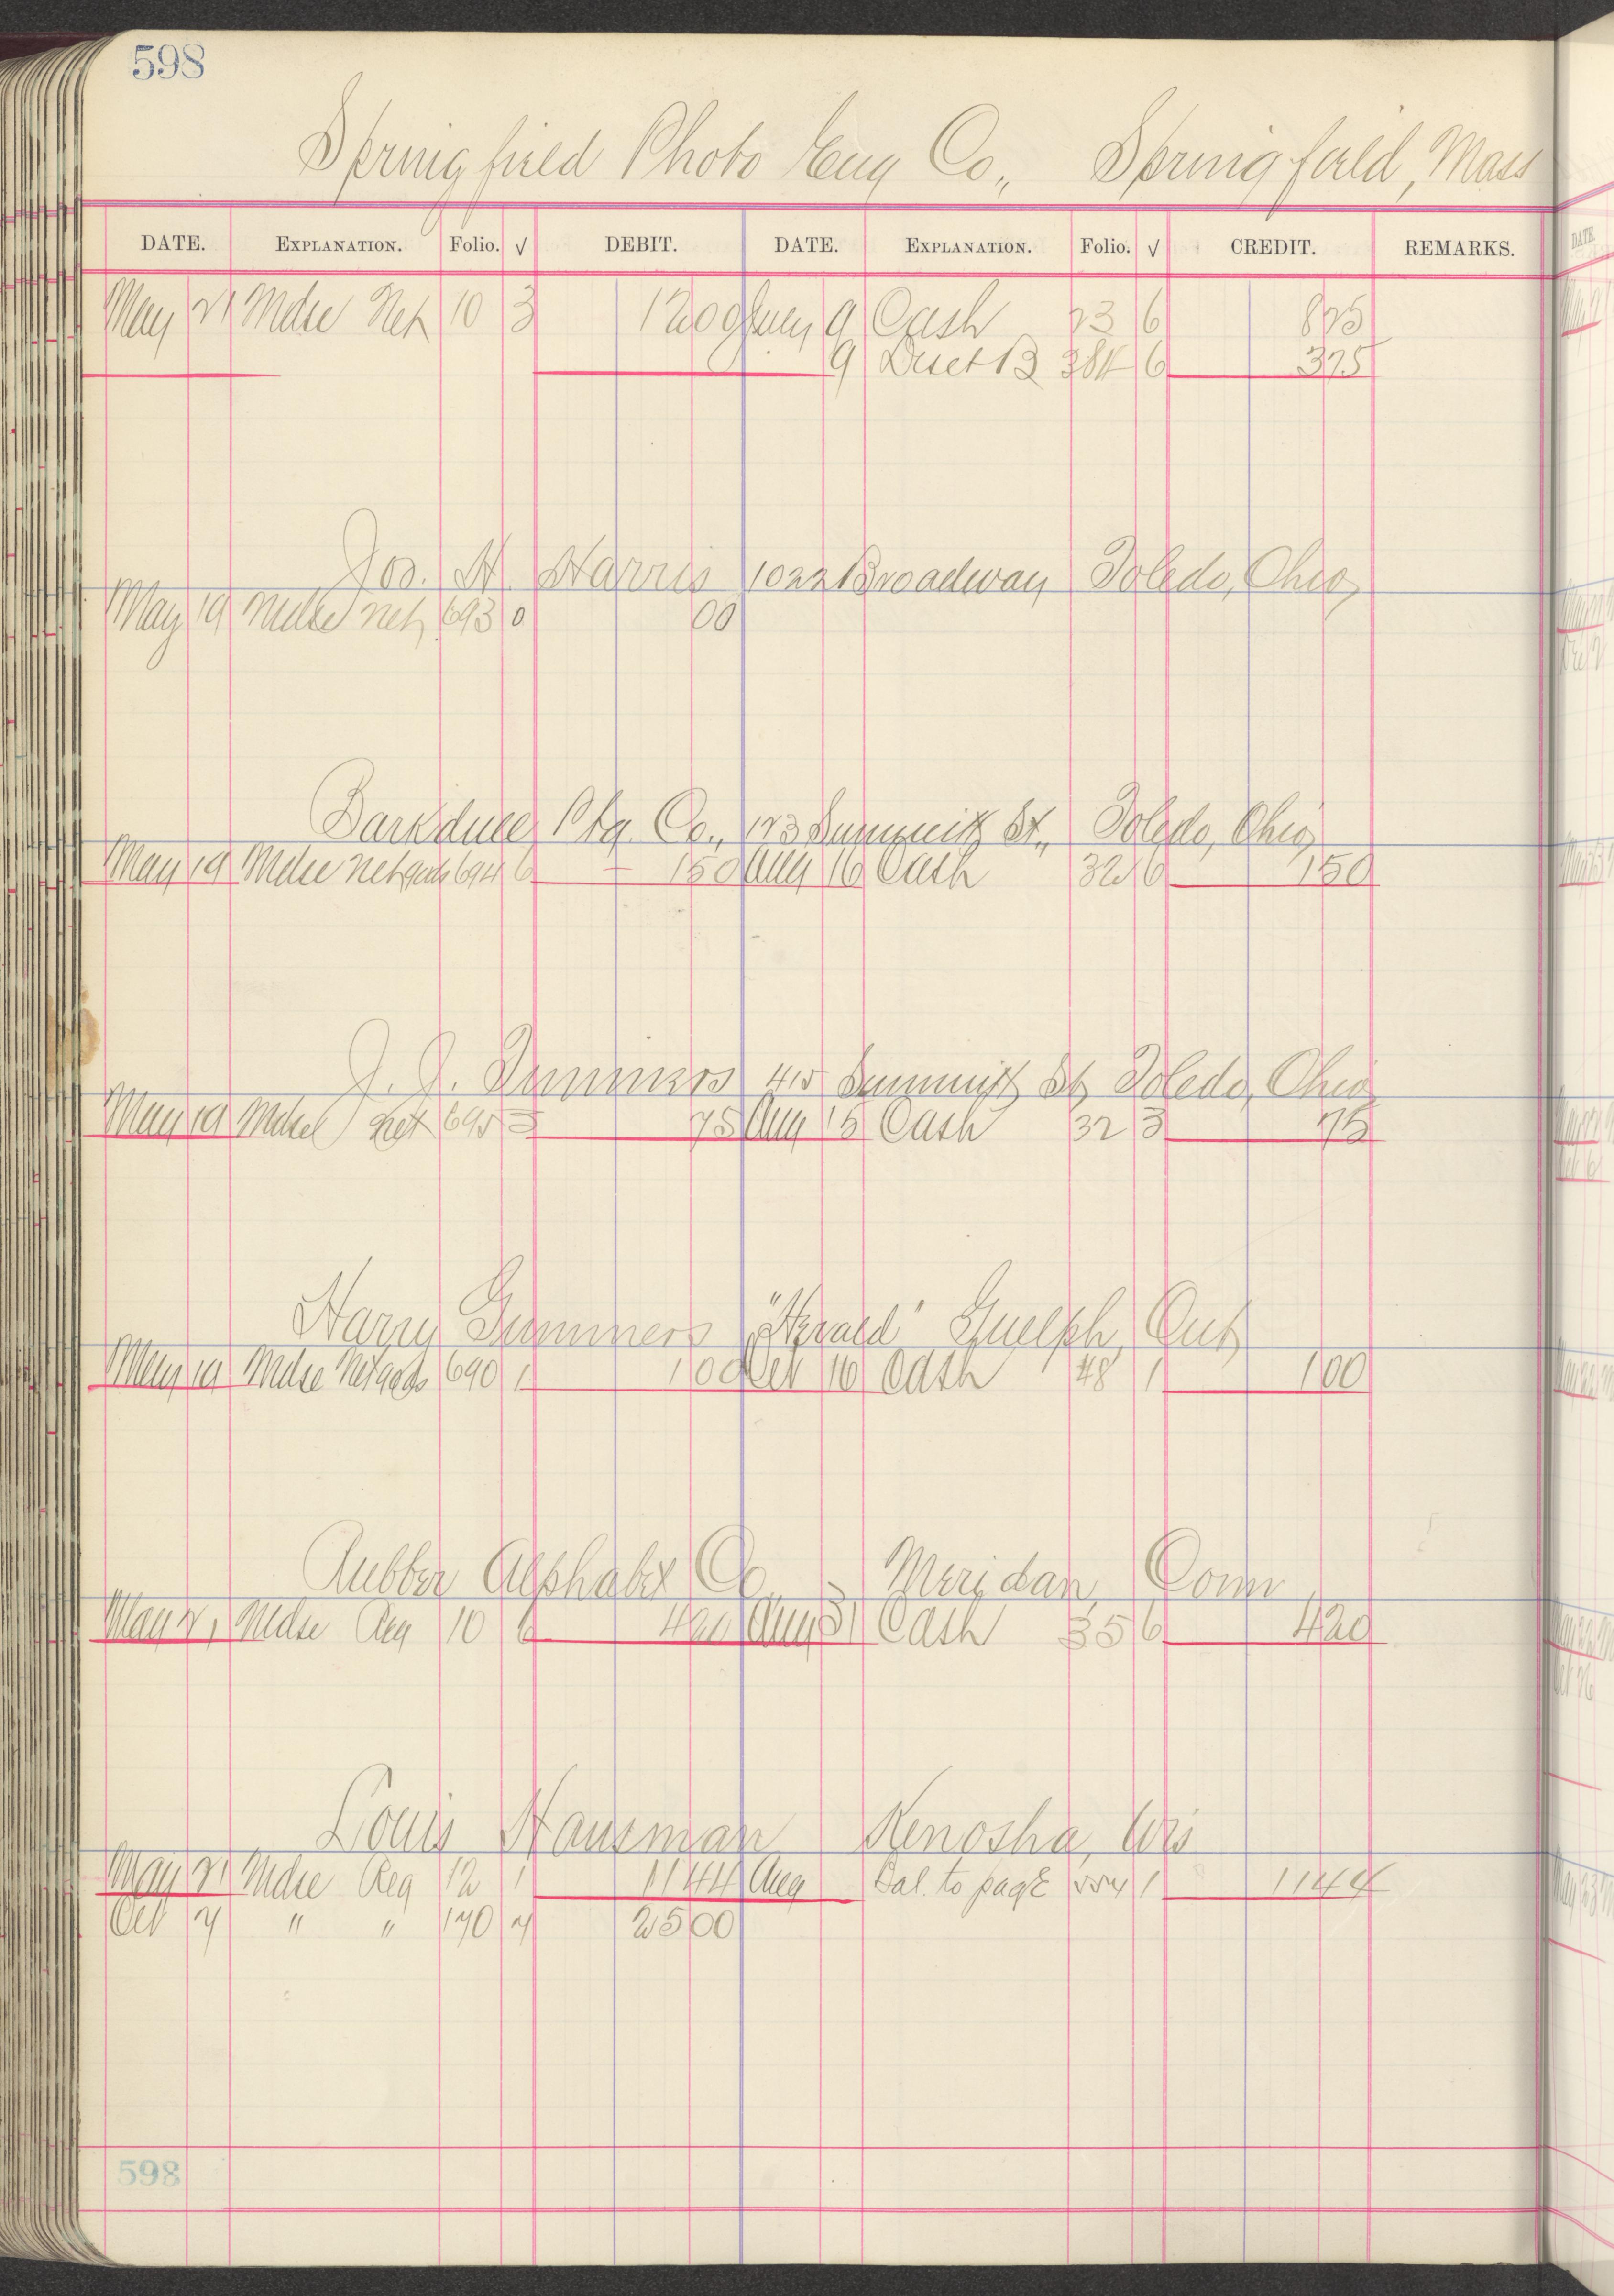 598
Springfield Photo Eng Co., Springfield, Mass
DATE. EXPLANATION. Folio. √ DEBIT. DATE. EXPLANATION. Folio. √ CREDIT. REMARKS.
May 21 Mdse Net 10 3 1200 July 9 Cash 23 6 825
9 Disct B 384 6 375
Jos. H. Harris 1022 Broadway Toledo, Ohio,
May 19 Mdse Net 693 0 00
Barkdull Ptg. Co., 123 Summit St., Toledo, Ohio,
May 19 Mdse Net gds 694 6 150 Aug 16 Cash 32 6 150
J. J. 415 Summit St, Toledo, Ohio
May 19 Mdse Net 695 3 75 Aug 15 Cash 32 3 75
Harry Gummers "Herald" Guelph, Ont,
May 19 Mdse Net gds 690 1 100 Oct 16 Cash 48 1 100
Rubber Alphabet Co Meridan, Conn
May 21 Mdse Reg 10 6 420 Aug 31 Cash 35 6 420
Louis Hansman Kenosha, Wis
May 21 Mdse Reg 12 1 1144 Aug Bal. to page 554 1 1144
Oct 7 " " 170 7 2500
598